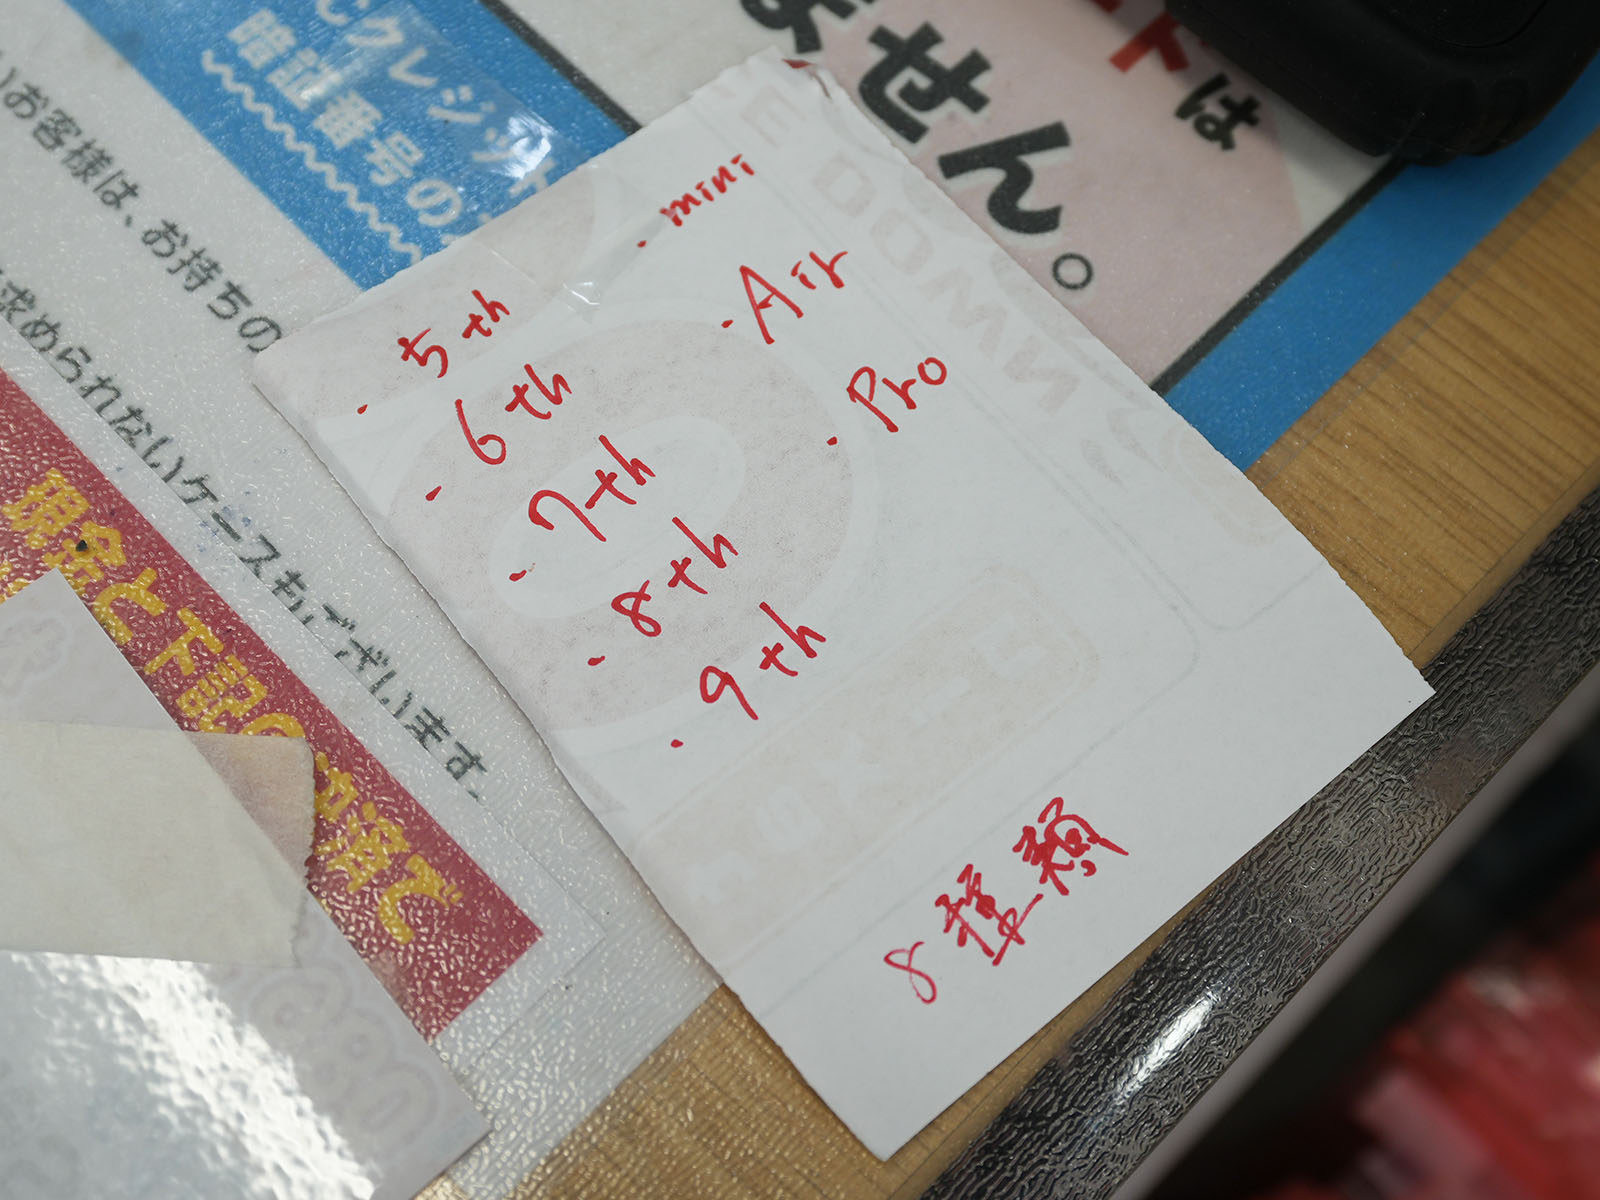 ・5th
・6th
・7th
・8th
・9th
・mini
・Air
・Pro
8種類
クレジット
暗証番号の
ません。
ードは
いお客様は、お持ちの
求められないケースもございます。
現金と下記の
済で
E DOWN